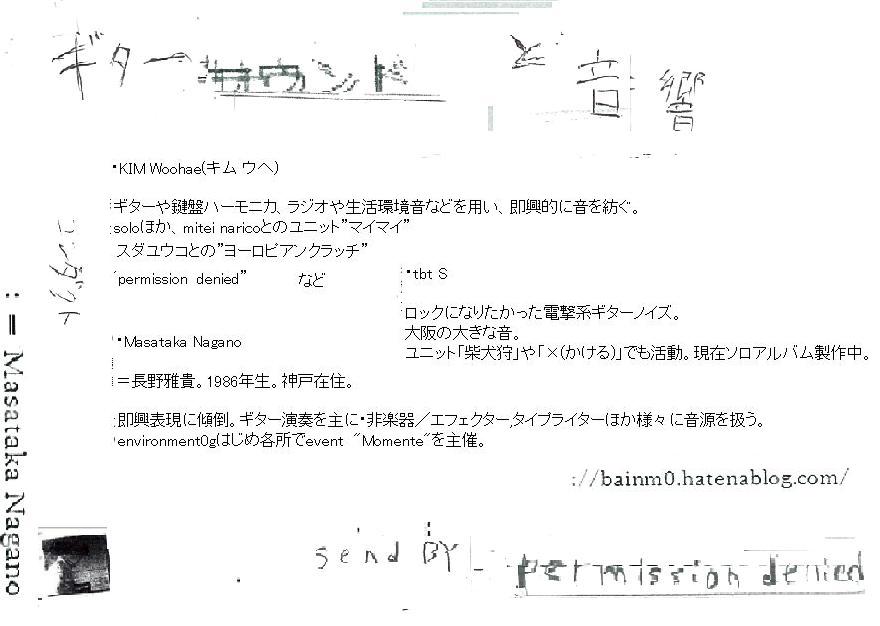 ギター サウンド と 音 響
・KIM Woohae(キム ウヘ)
ギターや鍵盤ハーモニカ、ラジオや生活環境音などを用い、即興的に音を紡ぐ。
soloほか、mitei naricoとのユニット”マイマイ”
スダユウコとの”ヨーロピアンクラッチ”
“permission denied” など
・tbt S
ロックになりたかった電撃系ギターノイズ。
大阪の大きな音。
ユニット「柴犬狩」や「×(かける)」でも活動。現在ソロアルバム製作中。
・Masataka Nagano
＝長野雅貴。1986年生。神戸在住。
即興表現に傾倒。ギター演奏を主に・非楽器／エフェクター,タイプライターほか様々に音源を扱う。
environment0gはじめ各所でevent “Momente”を主催。
://bainm0.hatenablog.com/
send BY - permission denied
: = Masataka Nagano